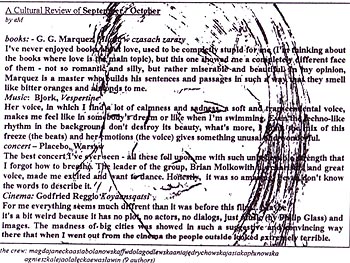 A Cultural Review of September / October
by akf
books: - G. G. Marquez w czasach zarazy
I've never enjoyed books about love, used to be completely stupid for me (I'm thinking about
the books where love is the main topic), but this one showed me a completely different face
of them - not so romantic and silly, but rather miserable and beautiful. In my opinion,
Marquez is a master who builds his sentences and passages in such a way that they smell
like bitter oranges and almonds to me.
Music: Bjork, Vespertine
Her voice, in which I find a lot of calmness and sadness, a soft and transcendental voice,
makes me feel like in somebody's dream or like when I'm swimming. Even the techno-like
rhythm in the background don't destroy its beauty, what's more, I the mix of this
freeze (the beats) and her emotions (the voice) gives something unusual and wonderful.
concert – Placebo, Warsaw
The best concert I've ever seen - all these fell upon me with such unbelievable strength that
I forgot how to breathe. The leader of the group, Brian Molko with his and great
voice, made me excited and want to dance. Honestly, it was so amazing I even don't know
the words to describe it.
Cinema: Godfried Reggio Koyaanisqatsi
For me everything seems much different than it was before this film. Maybe
it's a bit weird because it has no plot, no actors, no dialogs, just music (by Philip Glass) and
images. The madness of big cities was showed in such a suggestive and convincing way
there that when I went out from the cinema the people outside looked extremely terrible.
the crew:
(9 authors)